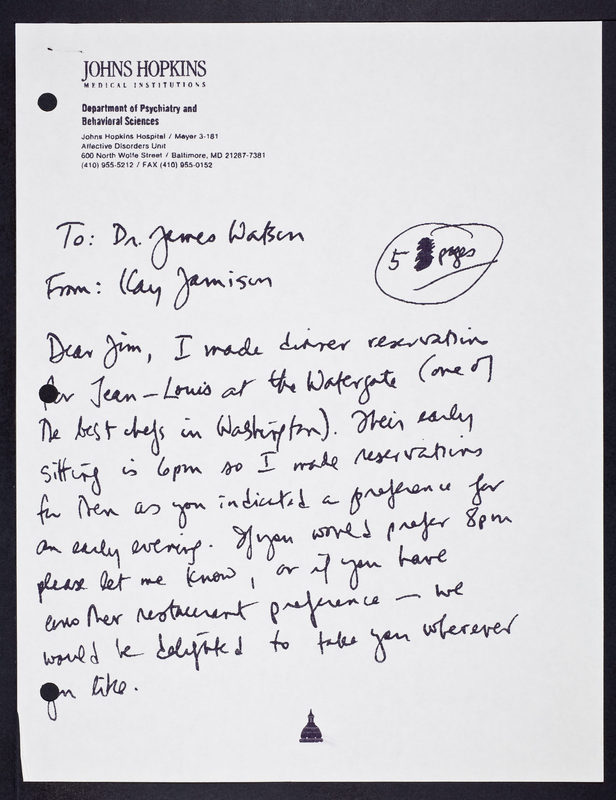 JOHNS HOPKINS
MEDICAL INSTITUTIONS
Department of Psychiatry and
Behavioral Sciences
Johns Hopkins Hospital / Meyer 3-181
Affective Disorders Unit
600 North Wolfe Street / Baltimore, MD 21287-7381
(410) 955-5212 / FAX (410) 955-0152
To: Dr. James Watson
5 pages
From: Kay Jamison
Dear Jim, I made dinner reservations
for Jean-Louis at the Watergate (one of
the best chefs in Washington). Their early
sitting is 6pm so I made reservations
for then as you indicated a preference for
an early evening. If you would prefer 8pm
please let me know, or if you have
another restaurant preference — we
would be delighted to take you wherever
you like.